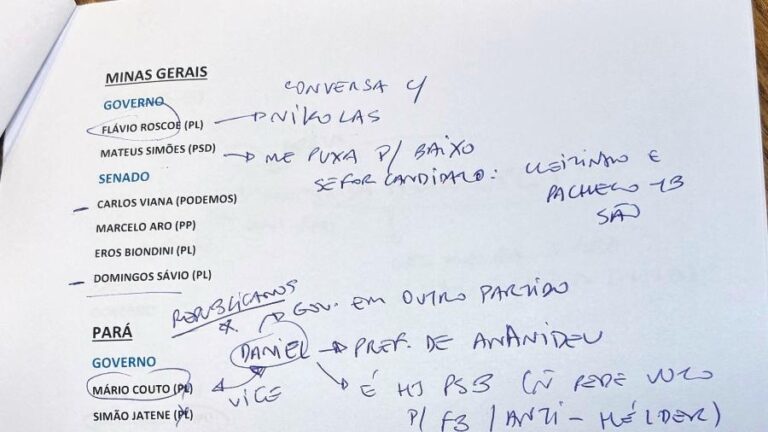 MINAS GERAIS
CONVERSA C/
GOVERNO
FLÁVIO ROSCOE (PL) → NIKOLAS
MATEUS SIMÕES (PSD) → ME PUXA P/ BAIXO
SE FOR CANDIDATO: CLEITINHO E
PACHECO TB
SÃO
SENADO
– CARLOS VIANA (PODEMOS)
MARCELO ARO (PP)
EROS BIONDINI (PL)
– DOMINGOS SÁVIO (PL)
REPUBLICANOS
* → GOV. EM OUTRO PARTIDO
PARÁ
DANIEL → PREF. DE ANANIDEU
GOVERNO
MÁRIO COUTO (PL) VICE → É HJ PSB (Ñ PEDE VOTO
SIMÃO JATENE (PL) P/ FB / ANTI-HÉLDER)